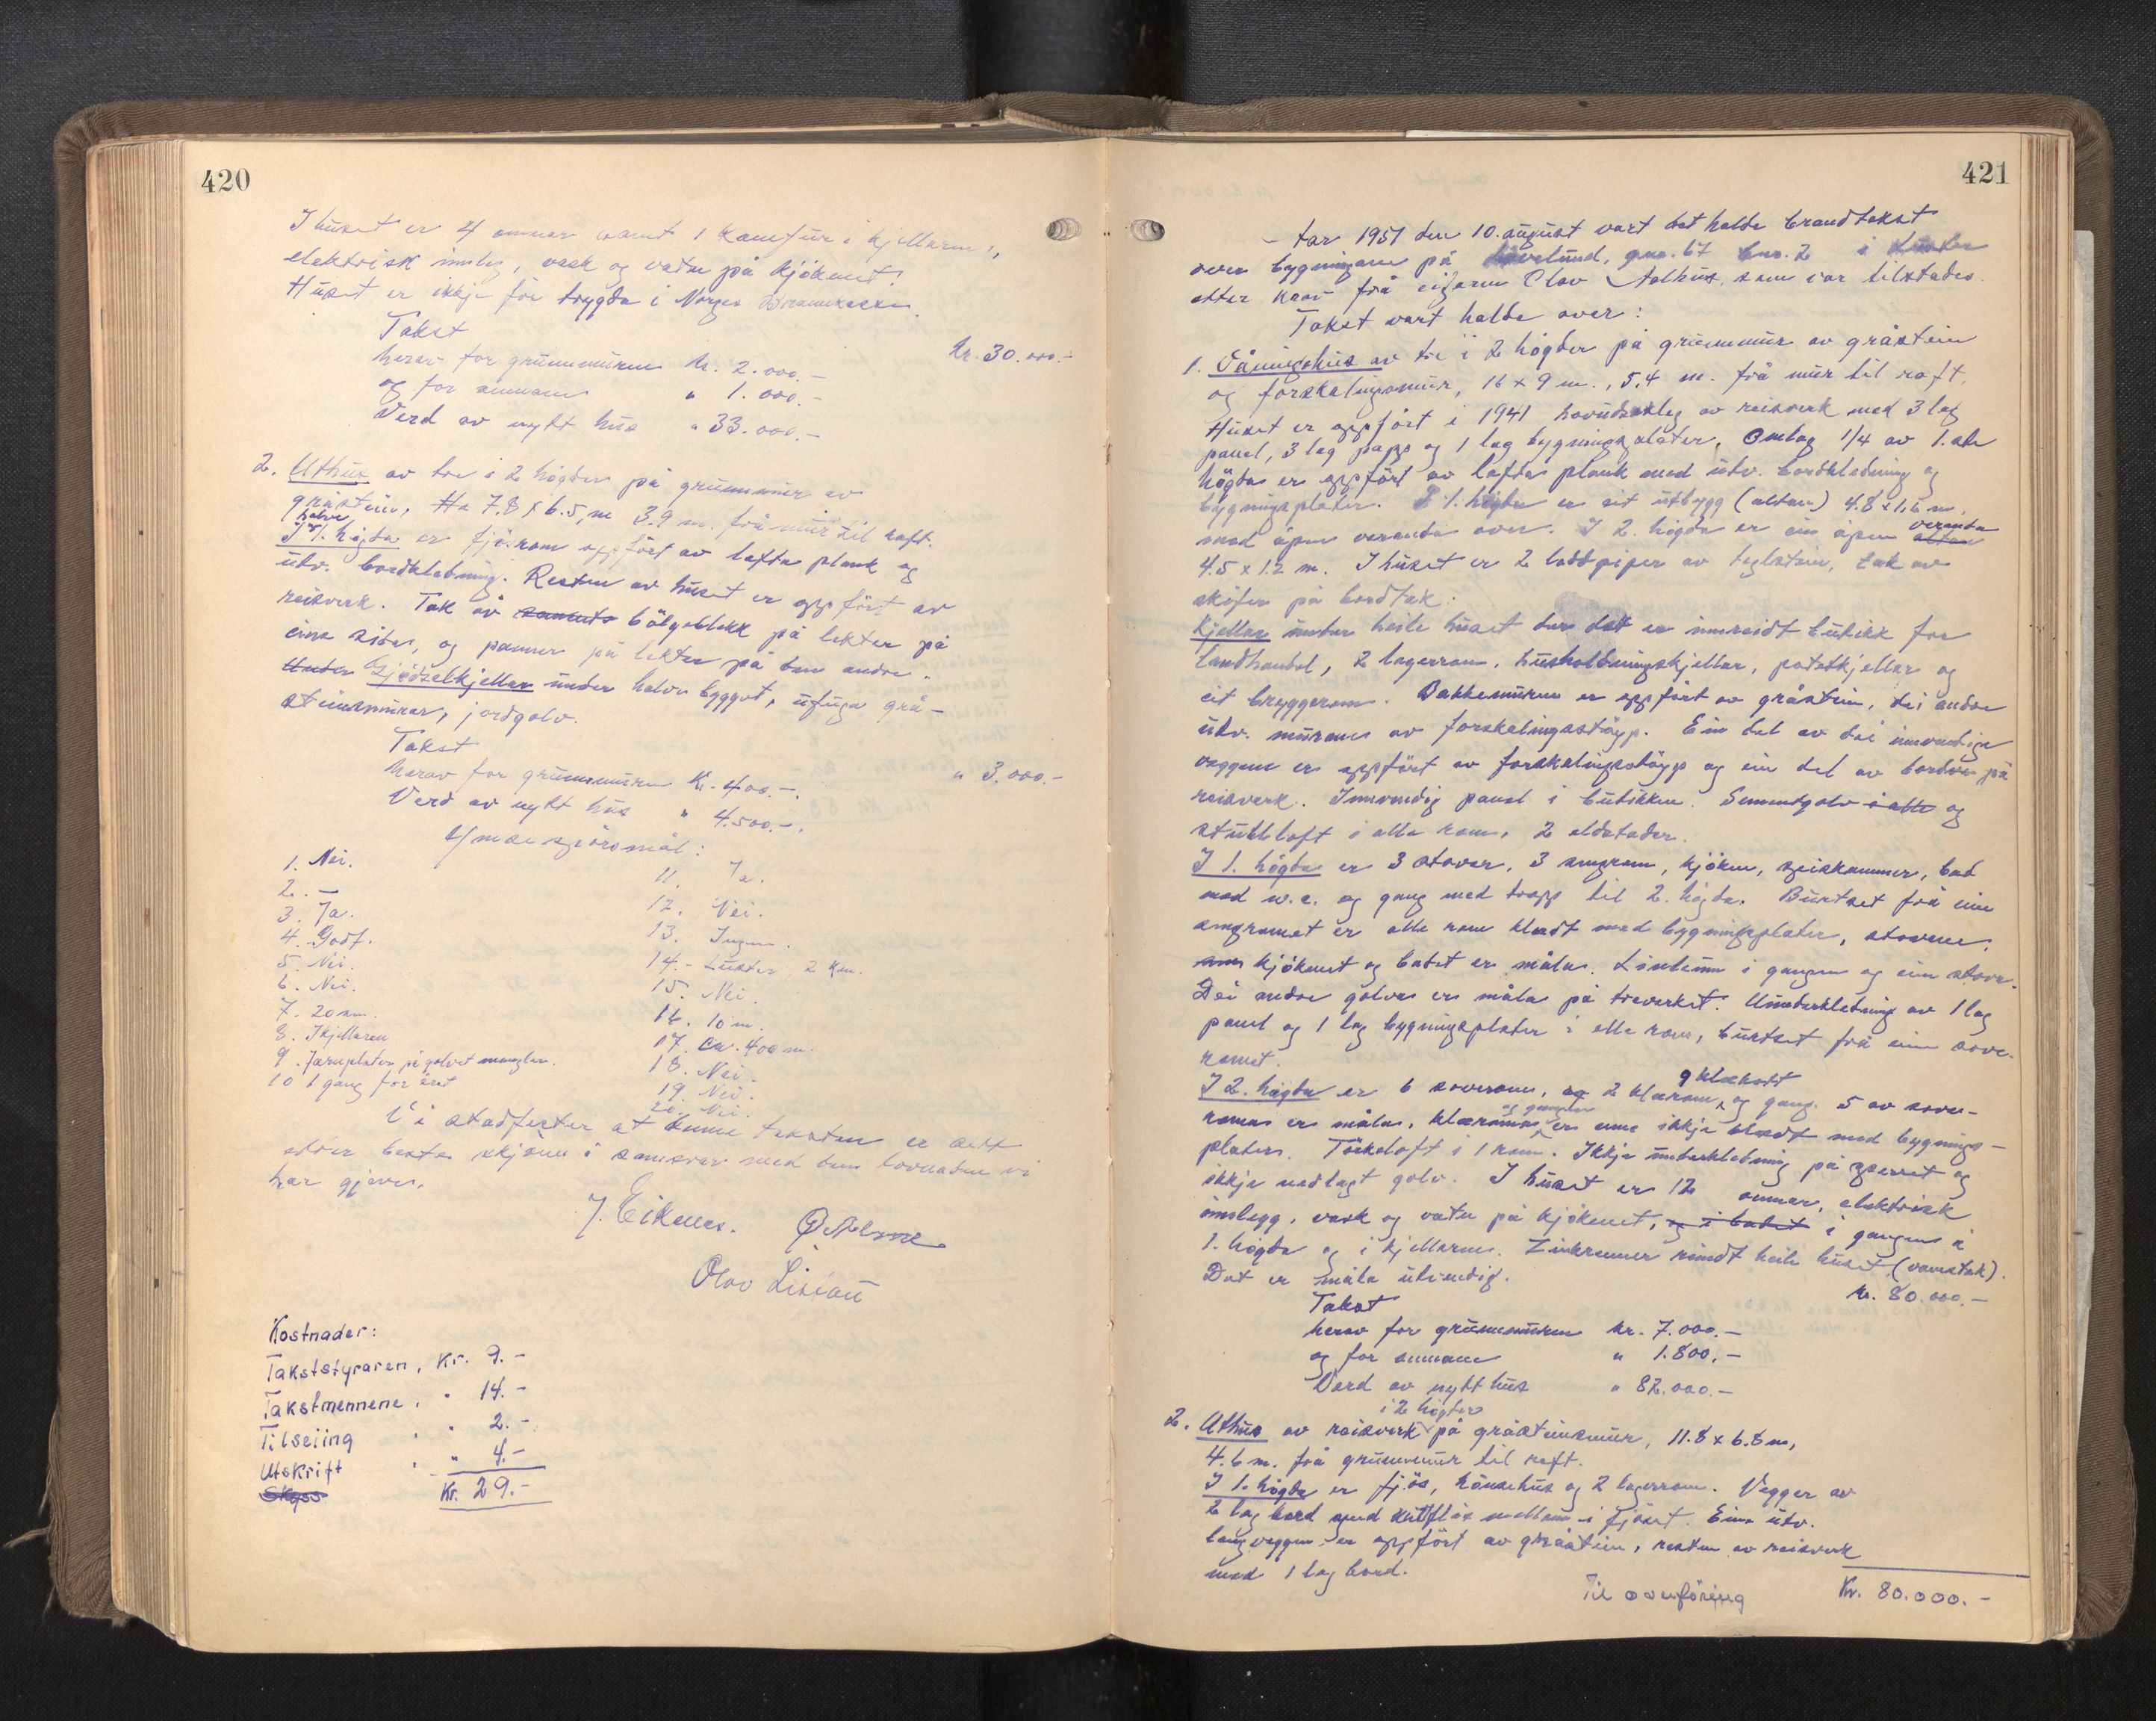 420
I huset er 4 omnar samt 1 kamfur i kjellaren,
elektrisk innlegg, vask og vatn på kjökenet.
Huset er ikkje för trygda i Norges Brannkasse.
Takst kr. 30.000.-
herav for grunnmuren kr. 2.000.-
og for omnane " 1.000.-
Verd av nytt hus " 33.000.-
2. Uthus av tre i 2 högder på grunnmur av
gråstein, Ha 7.8 x 6.5 m 3.9 m. frå mur til raft.
halve
I 1. högda er fjösrom oppfört av lafta plank og
utv. bordkledning. Resten av huset er oppfört av
reisverk. Tak av bölgeblekk på lekter på
eine sida, og panner på lekter på den andre.
Under Gjödselkjellar under halve bygget, ufuga grå-
steinsmurar, jordgolv.
Takst " 3.000.-
herav for grunnmuren Kr. 400.-
Verd av nytt hus " 4.500.-
Ymse spörsmål:
1. Nei.
2. –
3. Ja.
4. Godt.
5. Nei.
6. Nei.
7. 20 cm.
8. I kjellaren
9. Jarnplater på golvet manglar.
10 1 gang for året
11. Ja.
12. Nei.
13. Ingen.
14. - Luster, 2 km.
15. Nei.
16. 10 m.
17. ca. 400 m.
18. Nei.
19. Nei.
20. Nei.
Vi stadfester at denne taksten er sett
etter beste skjönn i samsvar med den lovnaden vi
har gjeve.
J. Eikenes.
Olav Lisdau
Kostnader:
Takststyraren, Kr. 9.-
Takstmennene, " 14.-
Tilseiing " 2.-
Utskrift " 4.-
Skyss
Kr. 29.-
421
– tar 1951 den 10. august vart det halde branntakst
over bygningane på gnr. 67 bnr. 2 i Luster
etter krav frå eigaren Olav som var tilstades.
Takst vart halde over:
1. Våningshus av tre i 2 högder på grunnmur av gråstein
og forskalingsmur, 16 x 9 m., 5,4 m. frå mur til raft.
Huset er oppfört i 1941 hovudsakleg av reisverk med 3 lag
panel, 3 lag papp og 1 lag bygningsplater. Omlag 1/4 av 1. ste
högda er oppfört av lafta plank med utv. bordkledning og
bygningsplater. I 1. högda er eit utbygg (altan) 4.8 x 1,6 m.
med åpen veranda over. I 2. högda er ein åpen altan veranda
4.5 x 1.2 m. I huset er 2 loddpiper av teglstein, tak av
skifer på bordtak.
Kjellar under heile huset der det er innreidt butikk for
landhandel, 2 lagerrom, husholdningskjellar, potetkjellar og
eit bryggerom. Bakkemuren er oppfört av gråstein, dei andre
utv. murane av forskalingsstöyp. Ein del av dei innvendige
veggene er oppfört av forskalingsstöyp og ein del av bordvegg på
reisverk. Innvendig panel i butikken. Sementgolv i alle og
stubbloft i alle rom. 2 eldstader.
I 1. högda er 3 stover, 3 soverom, kjöken, speiskammer, bad
med w.c. og gang med trapp til 2. högda. Burtset frå eine
soverommet er alle rom kledt med bygningsplater, stovene,
kjökenet og badet er måla. Linoleum i gangen og ein stove.
Dei andre golva er måla på treverket. Underkledning av 1 lag
panel og 1 lag bygningsplater i alle rom, burtset frå ein sove-
romet.
I 2. högda er 6 soverom, og 2 klærom, 9 kleskott og gang. 5 av sove-
roma er måla, klæromma og gangen er ikkje kledt med bygnings-
plater. Törkeloft i 1 rom. Ikkje underkledning på sperret og
ikkje nedlagt golv. I huset er 12 omnar, elektrisk
innlegg, vask og vatn på kjökenet, og i badet i gangen i
1. högda og i kjellaren. Zinkrenner rundt heile huset (vannstak).
Det er måla utvendig.
Takst kr. 80.000.-
herav for grunnmuren kr. 7.000.-
og for omnane " 1.800.-
Verd av nytt hus " 82.000.-
i 2 högder
2. Uthus av reisverk på gråsteinsmur, 11.8 x 6.8 m,
4.6 m. frå grunnmur til raft.
I 1. högda er fjös, hönsehus og 2 lagerrom. Vegger av
2 lag bord med kutflis mellom i fjöset. Eine utv.
langveggen er oppfört av gråstein, resten av reisverk
med 1 lag bord.
Til overföring Kr. 80.000.-